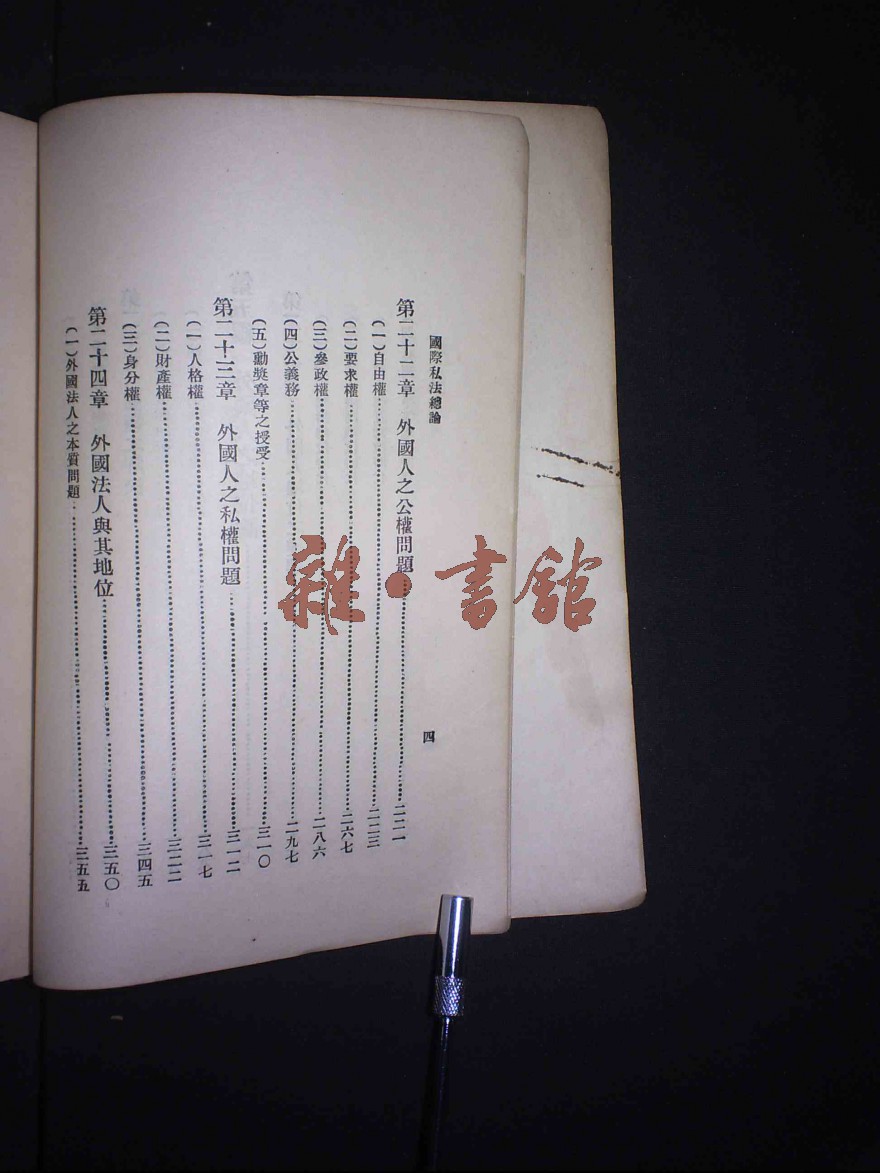 國際私法總論
四
第二十二章 外國人之公權問題…………二二一
(一)自由權…………二二三
(二)要求權…………二六七
(三)參政權…………二八六
(四)公義務…………二九七
(五)勳獎章等之授受…………三一〇
第二十三章 外國人之私權問題…………三一二
(一)人格權…………三一七
(二)財產權…………三二二
(三)身分權…………三四五
第二十四章 外國法人與其地位…………三五〇
(一)外國法人之本質問題…………三五五
雜·書館